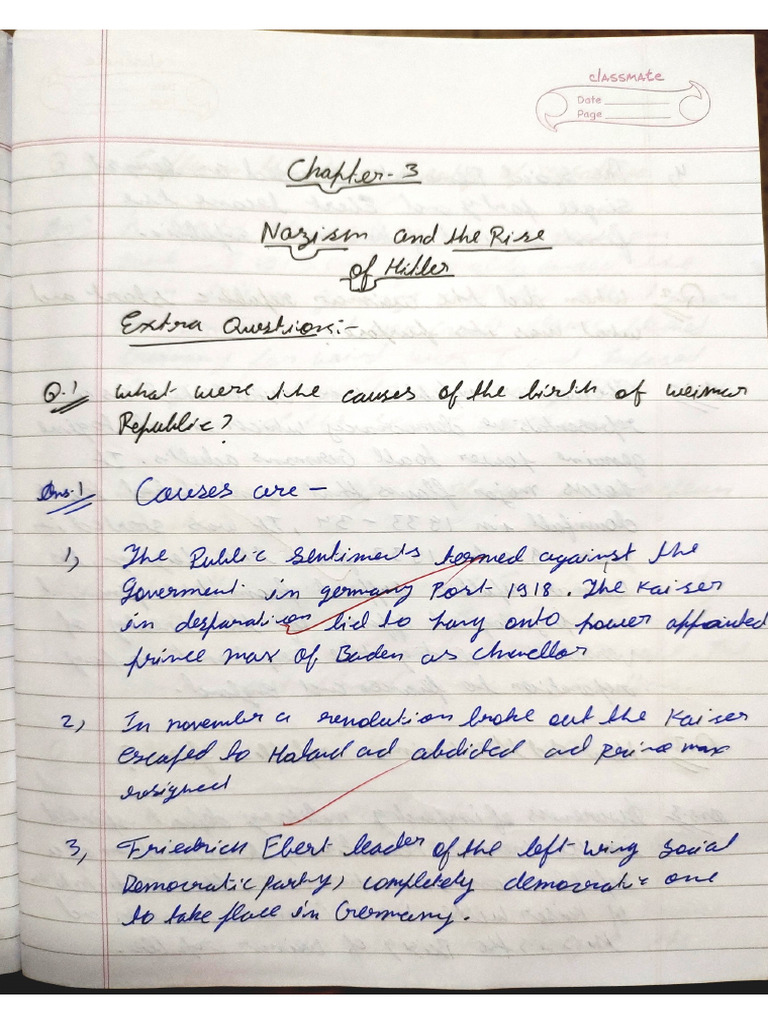 classmate
Date
Page
Chapter-3
Nazism and the Rise
of Hitler
Extra Questions:-
Q.1 What were the causes of the birth of weimar
Republic?
Ans.1 Causes are -
1, The Public Sentiments termed against the
Goverment in germany Post 1918. The Kaiser
in desparation bid to hang onto power appointed
prince max of Baden as chancellor
2, In november a revolution broke out the Kaiser
escaped to Holand ad abdicted ad Prince max
resigned
3, Friedrich Ebert leader of the left-wing Social
Democratic party, completely democratic one
to take place in Germany.